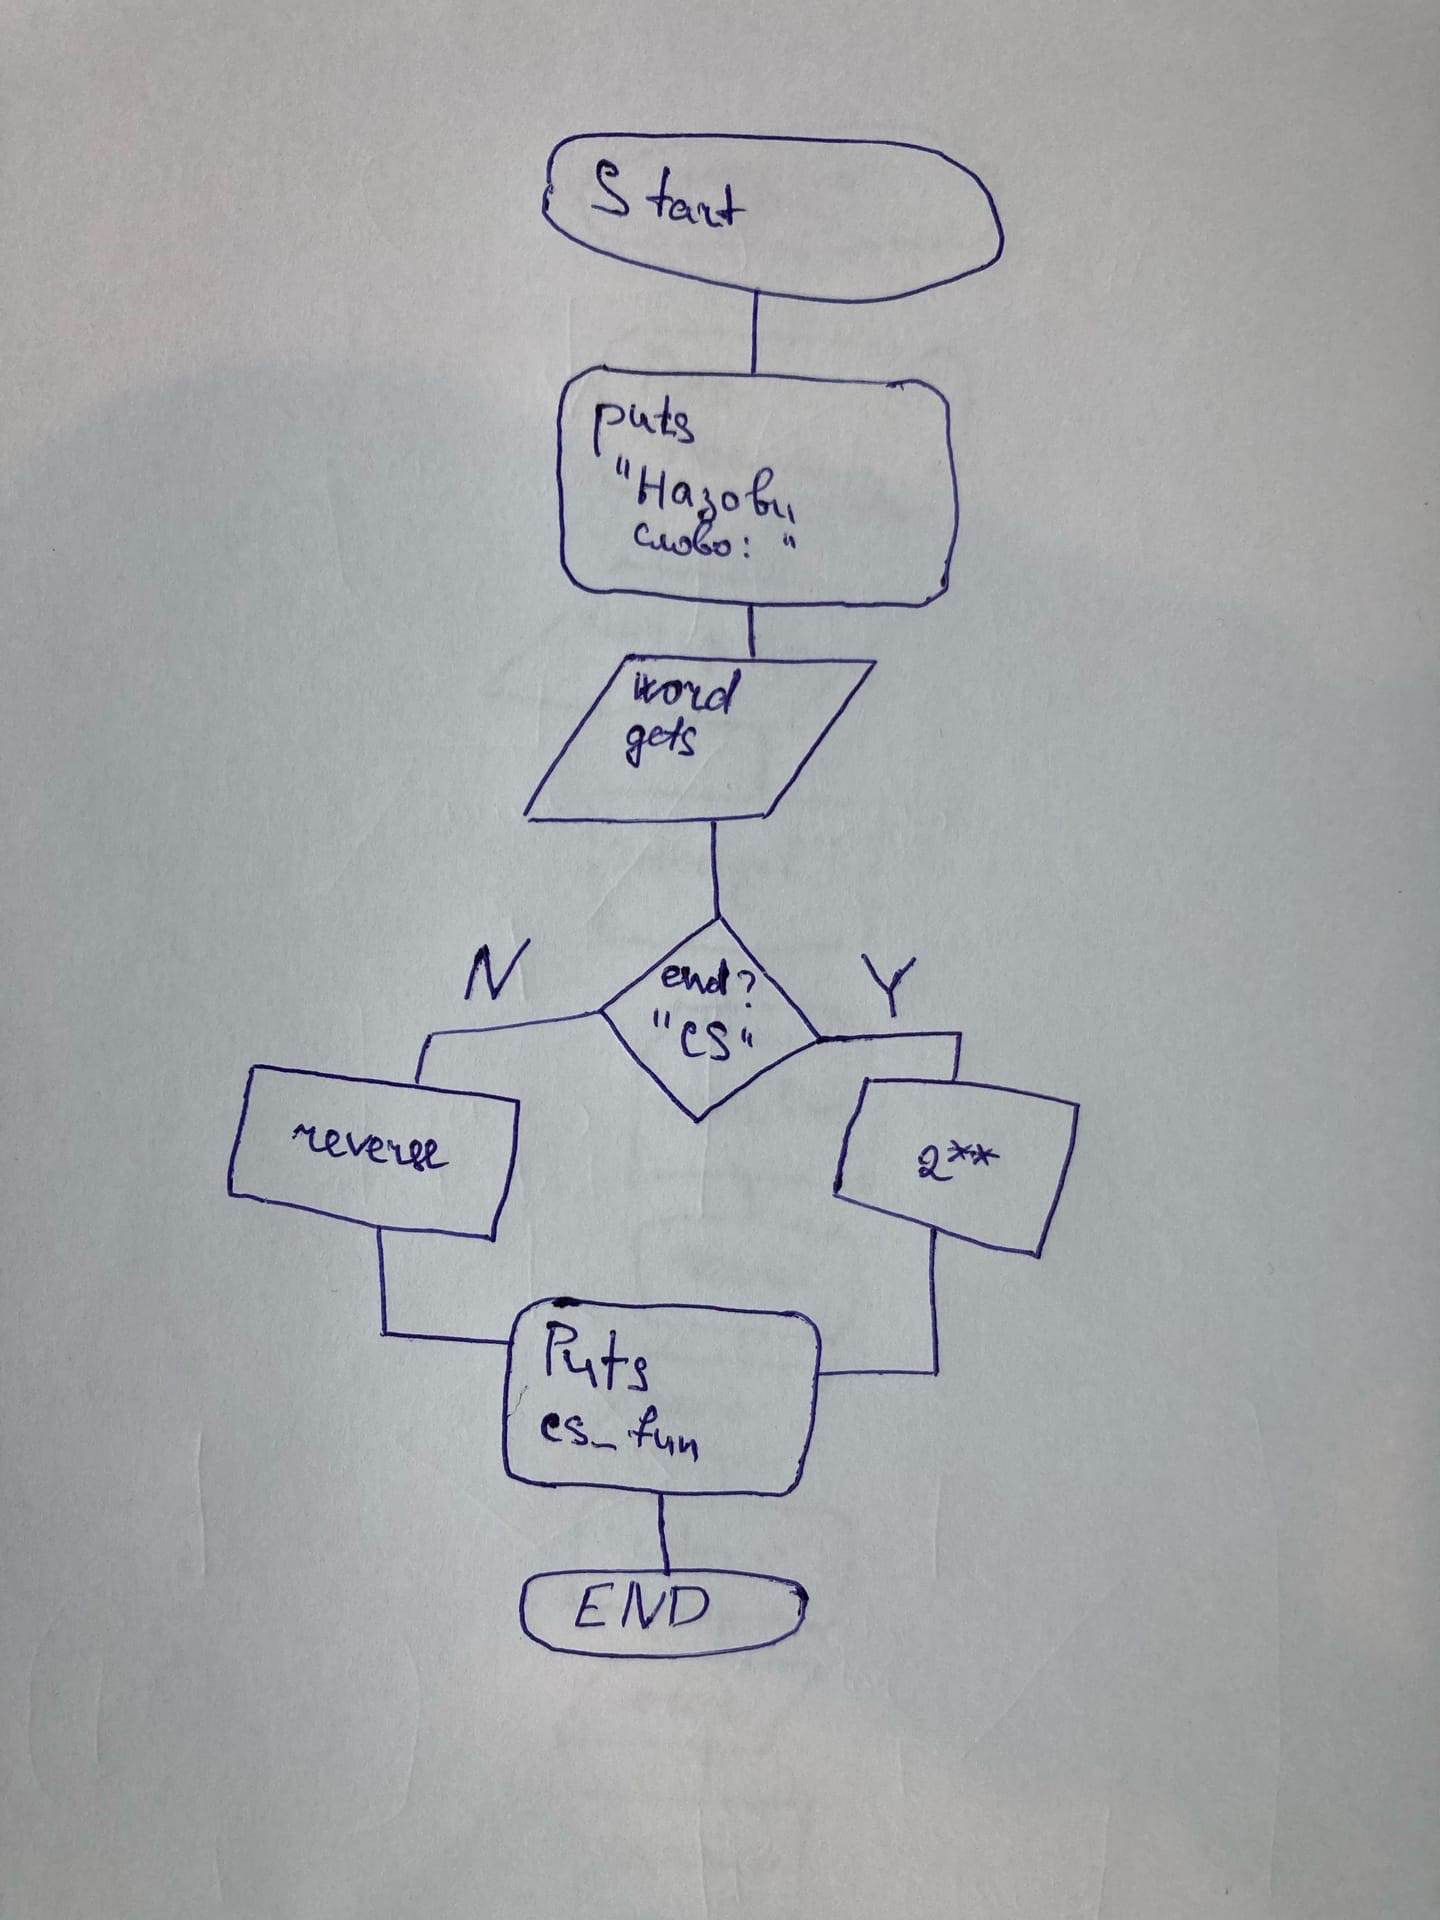 Start
puts
"Назови
слово: "
word
gets
N
end?
"CS"
Y
reverse
2**
Puts
cs_fun
END